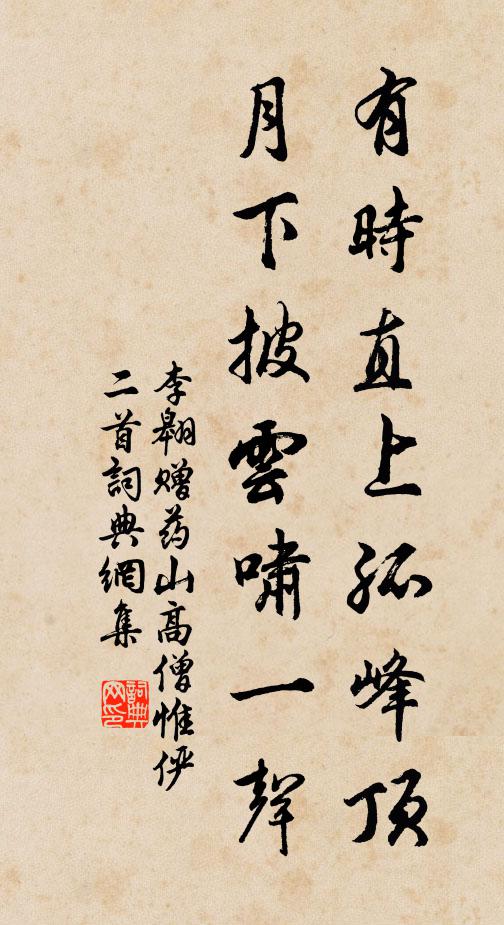 有時直上孤峰頂
月下披雲嘯一聲
李翱贈药山高僧惟俨
二首詞典網集
詞典网印